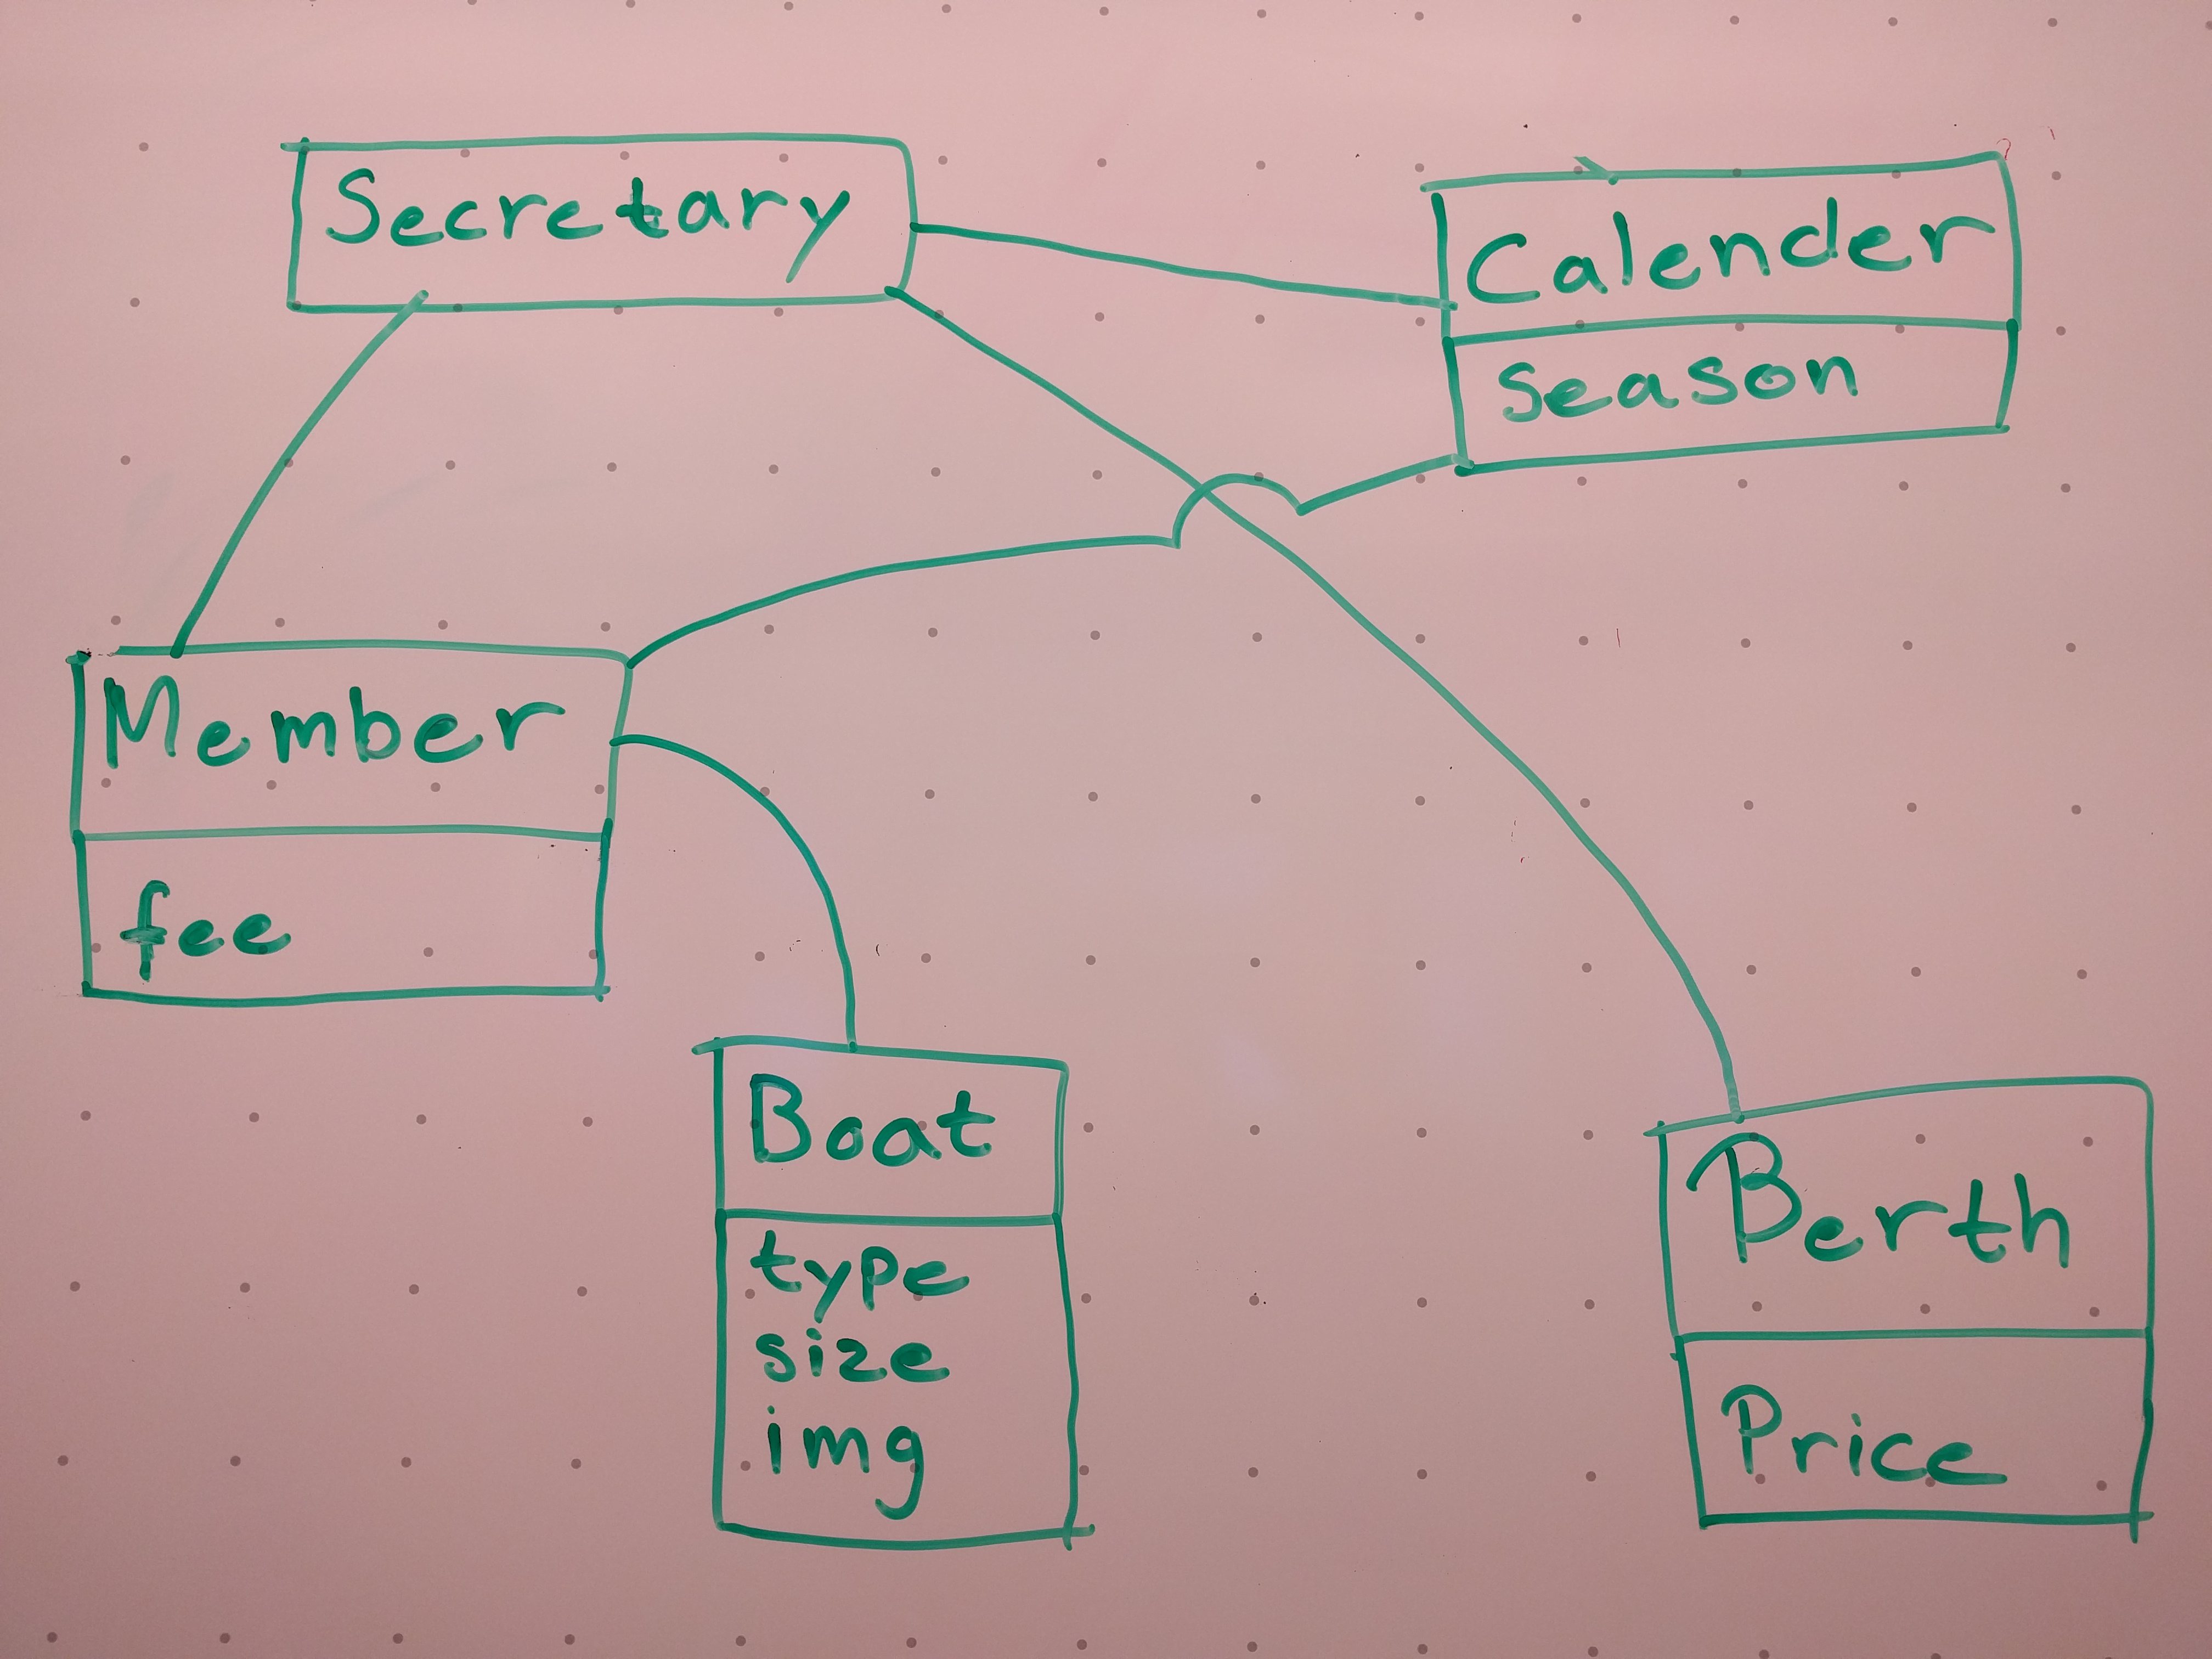 Secretary
Calender
season
Member
fee
Boat
type
size
img
Berth
Price